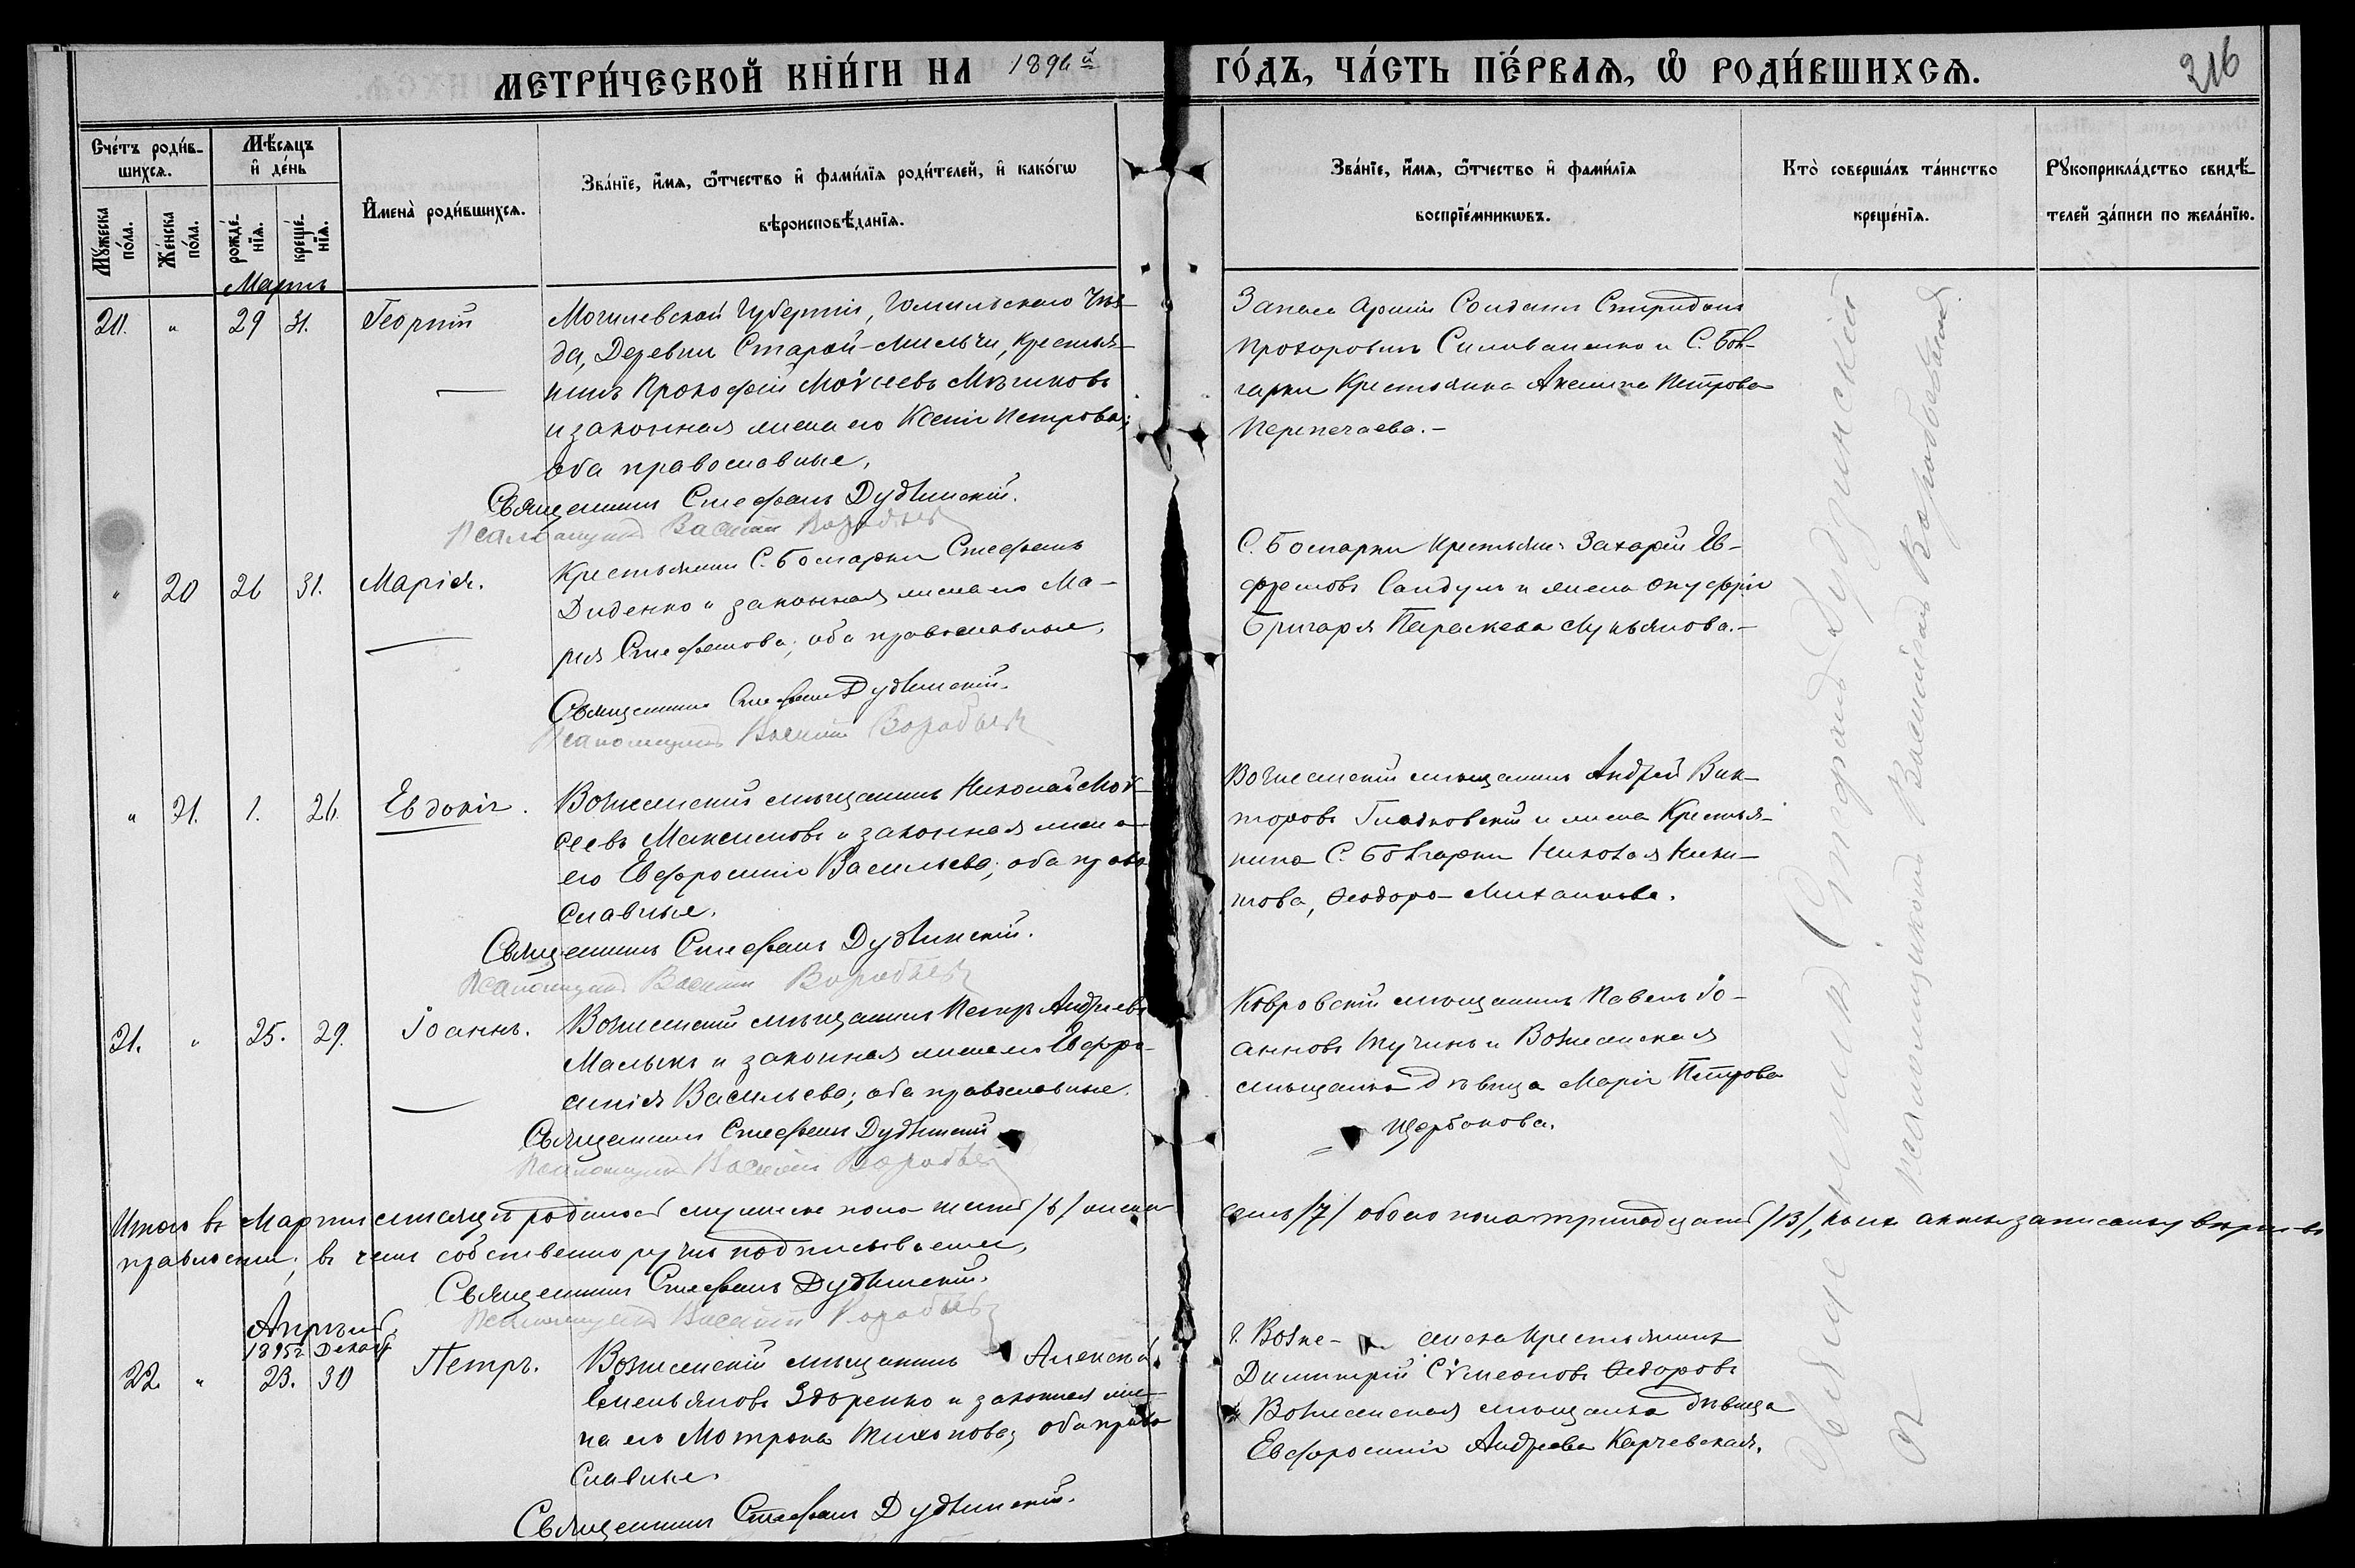 МЕТРИ́ЧЕСКОЙ КНИ́ГИ НА 1896й ГО́ДЪ, ЧА́СТЬ ПЕ́РВАѦ, Ѽ РОДИ́ВШИХСѦ.
216
Сче́тъ роди́в-
шихсѧ.
Мꙋ́жеска
по́ла.
Же́нска
по́ла.
Мѣ́сѧцъ
и҆ де́нь
рожде́-
нїѧ.
креще́-
нїѧ.
И҆мена̀ роди́вшихсѧ.
Зва́нїе, и҆́мѧ, ѻ҆́тчество и҆ фами́лїѧ роди́телей, и҆ како́гѡ
вѣроисповѣ́данїѧ.
Зва́нїе, и҆́мѧ, ѻ҆́тчество и҆ фами́лїѧ
воспрїе́мникѡвъ.
Кто̀ соверша́лъ та́инство
креще́нїѧ.
Рꙋкоприкла́дство свидѣ́-
телей за́писи по жела́нїю.
Мартъ
20. " 29 31. Георгій
Могилевской Губерніи, Гомильского Уѣз-
да, Деревни Старой-Мильчи, Крестья-
нинъ Прокофій Моѵсеевъ Мѣшковъ
и законная жена его Ксенія Петрова;
оба православные.
Священникъ Стефанъ Дудзинскій.
Псаломщикъ Василій Воробьевъ
Запаса Арміи Солдатъ Спиридонъ
Прохоровъ Силиваненко и С. Бол-
гарки Крестьянка Акилина Петрова
Перепечаева.-
" 20 26 31. Марія.
Крестьянинъ С. Болгарки Стефанъ
Диденко и законная жена его Ма-
рія Стефанова; оба православные.
Священникъ Стефанъ Дудзинскій.
Псаломщикъ Василій Воробьевъ
С. Болгарки Крестьянинъ Захарій Ев-
Григорія Параскева Лукьянова.-
" 21. 1. 26. Евдокія.
Вознесенскій мѣщанинъ Николай Моѵ-
сеевъ Максимовъ и законная жена
его Евфросинія Васильева; оба право
славные.
Священникъ Стефанъ Дудзинскій.
Псаломщикъ Василій Воробьевъ
Вознесенскій мѣщанинъ Андрей Вик-
торовъ Гладковскій и жена Крестья-
нина С. Болгарки Николая Ники-
това, Ѳеодора Михаилова.
21. " 25. 29. Іоаннъ.
Вознесенскій мѣщанинъ Петръ Андреевъ
Малыкъ и законная жена его Евфро-
синія Васильева; оба православные.
Священникъ Стефанъ Дудзинскій
Псаломщикъ Василій Воробьевъ
Ковровскій мѣщанинъ Павелъ Іо-
анновъ Тучинъ и Вознесенская
мѣщанка дѣвица Марія Петрова
Щербакова.
Итого въ Мартѣ мѣсяцѣ родилось мужеска пола шесть /6/ женска семь /7/ обоего пола тринадцать /13/,
правности; въ чемъ собственноручно подписываемся,
Священникъ Стефанъ Дудзинскій.
Псаломщикъ Василій Воробьевъ
Апрѣль
1895г. Декабрь
22. " 23. 30 Петръ.
Вознесенскій мѣщанинъ Алексѣй
Емельяновъ Здоренко и законная же-
на его Мотрона Тихонова; оба право
славные.
Священникъ Стефанъ Дудзинскій.
г. Возне- сенска Крестьянинъ
Димитрій Сѵмеоновъ Ѳедоровъ
и Вознесенская мѣщанка дѣвица
Евфросинія Андреева Карчевская.
Священникъ Стефанъ Дудзинскій
Псаломщикъ Василій Воробьевъ